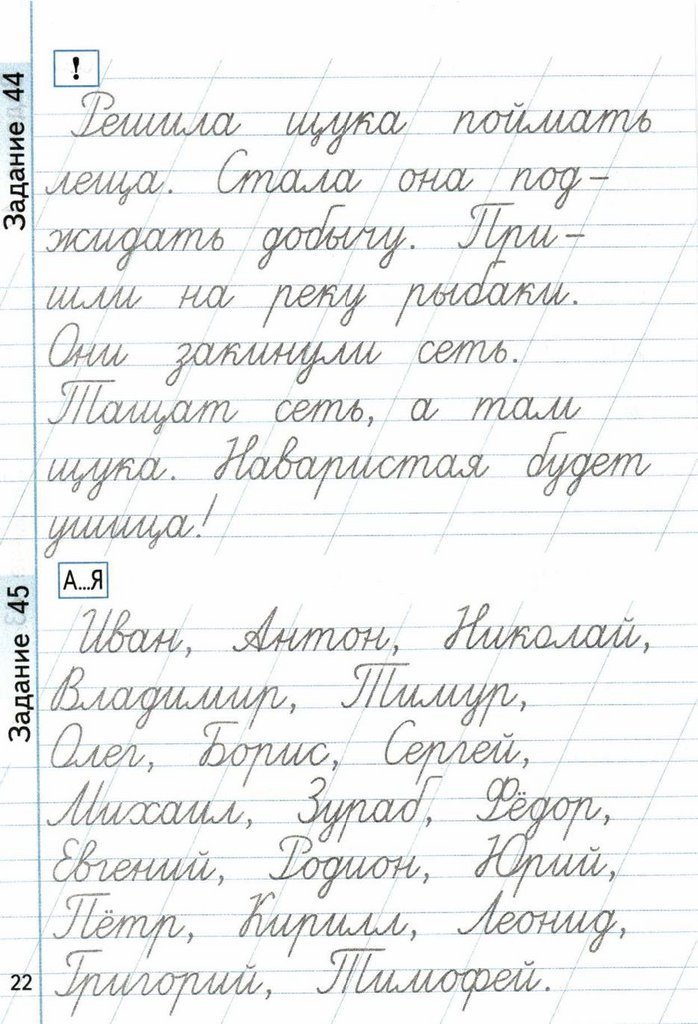 Задание 44
!
Решила щука поймать
леща. Стала она под-
жидать добычу. При-
шли на реку рыбаки.
Они закинули сеть.
Тащат сеть, а там
щука. Наваристая будет
ушица!
Задание 45
А...Я
Иван, Антон, Николай,
Владимир, Тимур,
Олег, Борис, Сергей,
Михаил, Зураб, Фёдор,
Евгений, Родион, Юрий,
Пётр, Кирилл, Леонид,
Григорий, Тимофей.
22